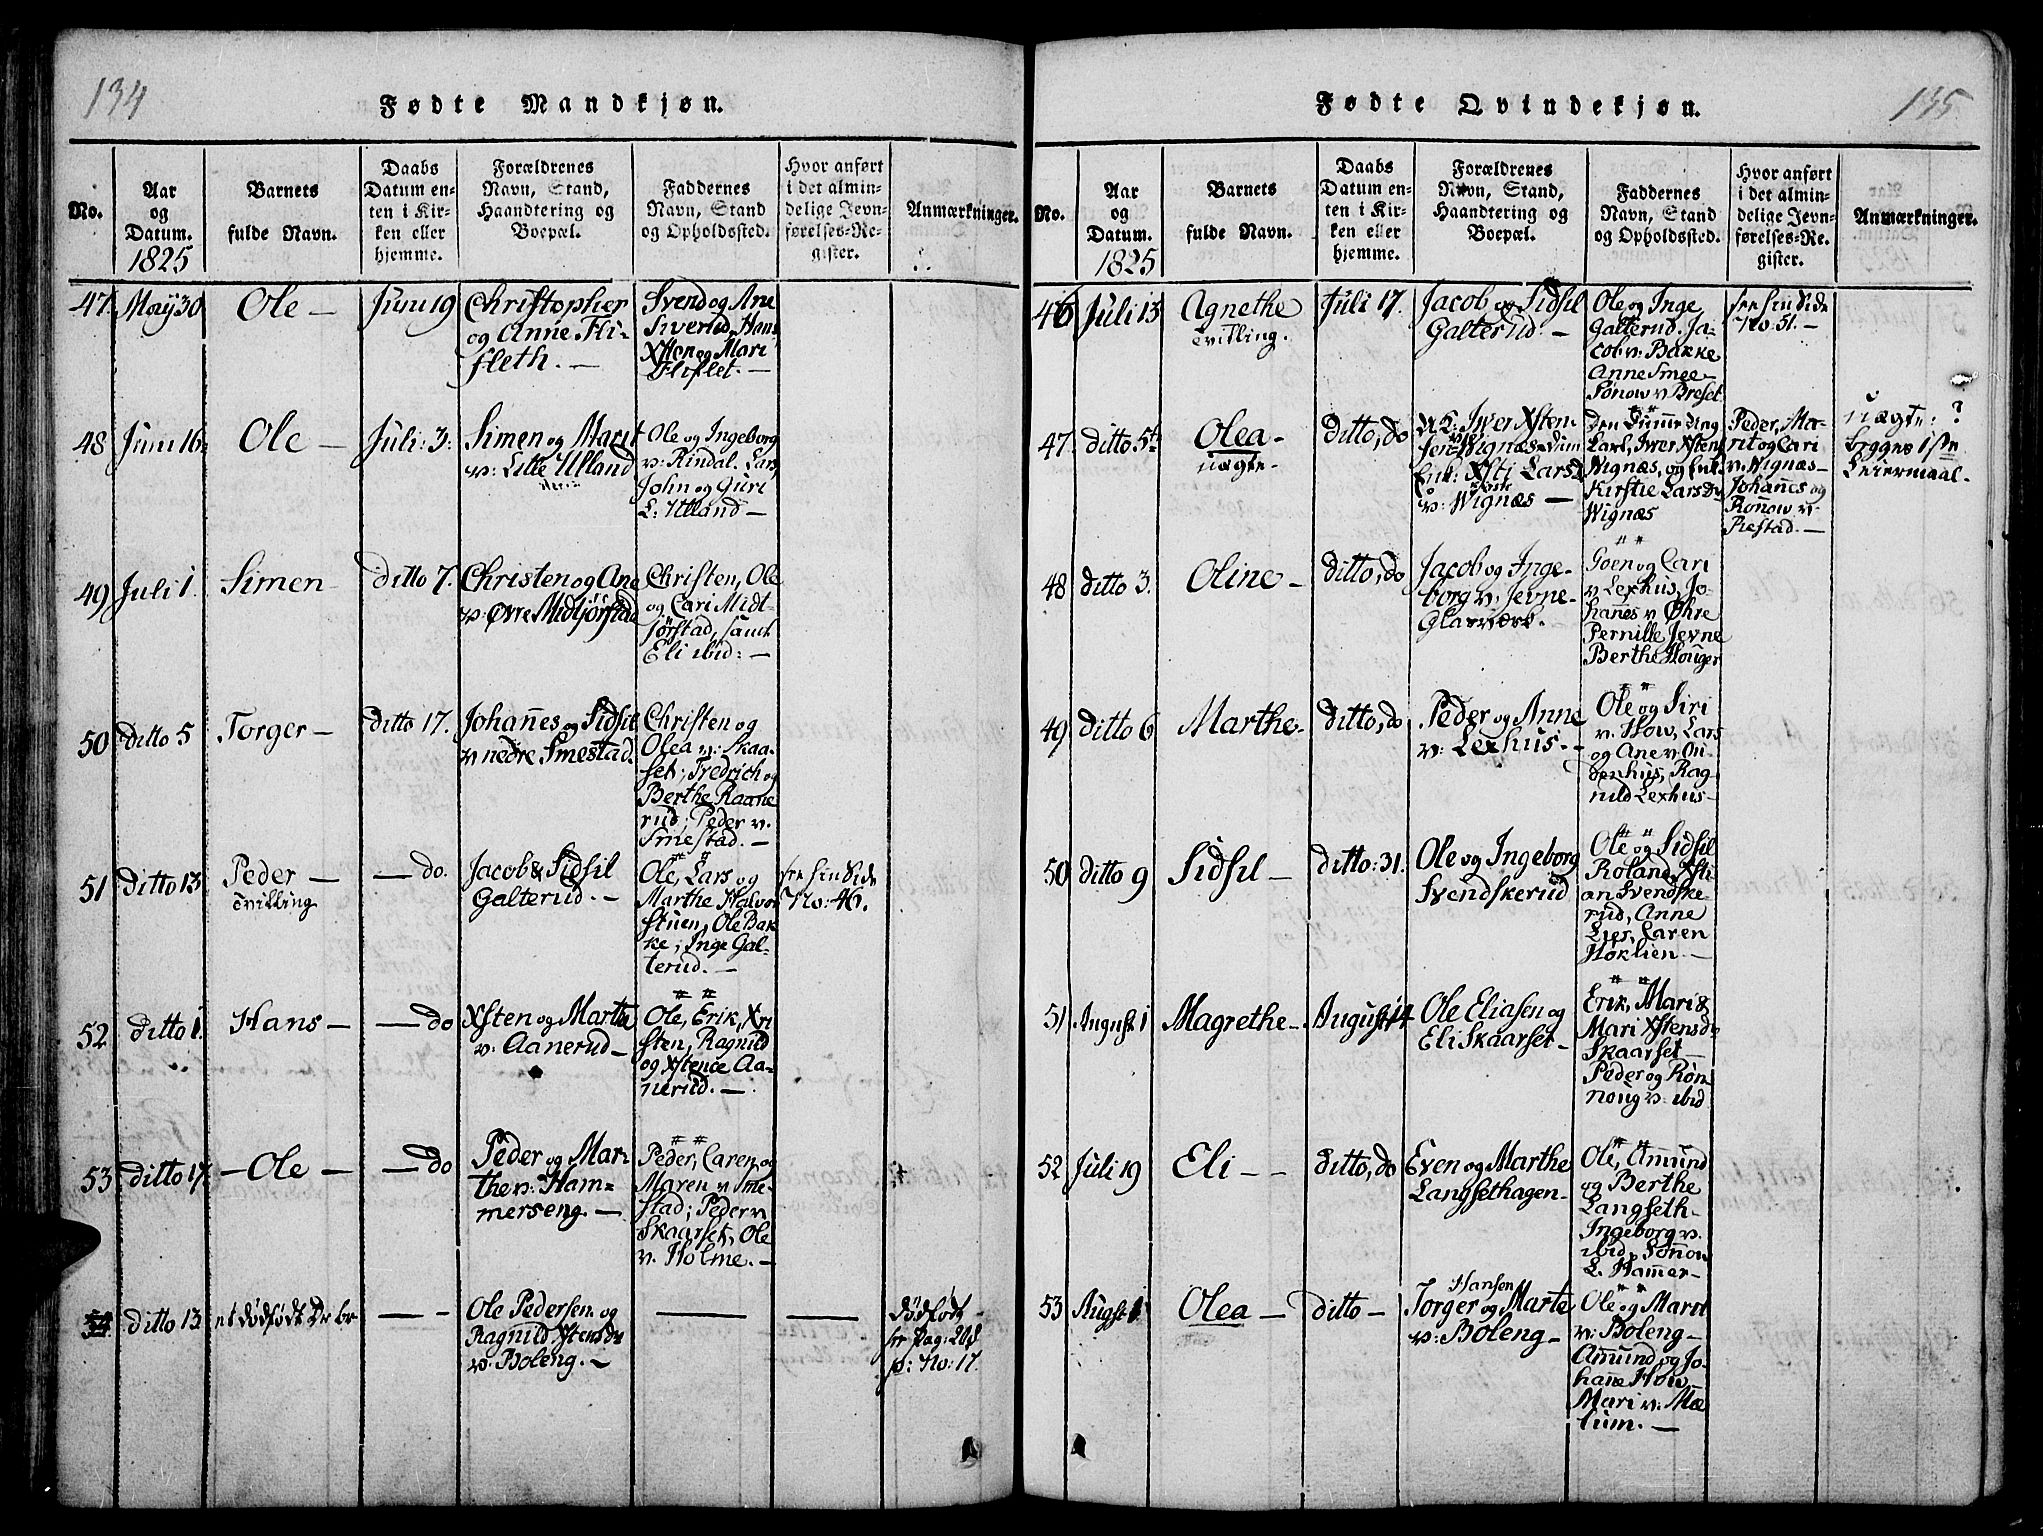 134
Fødte Mandkjøn.
No.
Aar
og
Datum.
1825
Barnets
fulde Navn.
Daabs
Datum en-
ten i Kir-
ken eller
hjemme.
Forældrenes
Navn, Stand,
Haandtering og
Boepæl.
Faddernes
Navn, Stand
og Opholdssted.
Hvor anført
i det almin-
delige Jevn-
førelses-Re-
gister.
Anmærkninger.
47. May 30
Ole —
Juni 19
Christopher
og Anne Fli-
fleth. —
Svend og Ane
Siverud, Hans
Xsten og Mari
Fliflet. —
48 Juni 16
Ole —
Juli: 3:
Simen og Marit
v: Litle Ulland
Ole og Ingeborg
v: Rindal. Lars,
John og Guri
L: Ulland —
49 Juli 1.
Simen —
Ditto 7.
Christen og Ane
v: Øvre Midtjørstad
Christen, Ole
og Cari Midt-
jørstad, samt
Eli ibid: —
50 ditto 5
Torger —
ditto 17.
Johannes og Sidsil
v nedre Smestad.
Christen og
Olea v: Skaa-
set; Fredrich og
Berthe Raane
rud; Peder v.
Smestad. —
51 ditto 13
Peder —
Tvilling
— do.
Jacob & Sidsil
Galterud. —
Ole, Lars og
Marthe Halvor
stuen, Ole Bak-
ke; Inge Gal-
terud. —
see sin Side
No: 46.
52 ditto 1.
Hans —
— do
Xsten og Marthe
v. Aanerud —
Ole, Erik, Xri
sten, Ragnild
og Xstence Aa-
nerud. —
53 ditto 17
— Ole —
— do
Peder og Mar-
the v: Ham-
merseng. —
Peder, Caren og
Maren v Sme-
stad; Peder v
Skaarset, Ole
v: Holme. —
54 ditto 13
et dødfødt
— -
Ole Pedersen og
Ragnild Xstensdr
v. Boleng. —
—
—
dødfødt
No: 17.
135
Fødte Qvindekjøn.
No.
Aar
og
Datum.
1825
Barnets
fulde Navn.
Daabs
Datum en-
ten i Kir-
ken eller
hjemme.
Forældrenes
Navn, Stand,
Haandtering og
Boepæl.
Faddernes
Navn, Stand
og Opholdssted.
Hvor anført
i det almin-
delige Jevn-
førelses-Re-
gister.
Anmærkninger.
46 Juli 13
Agnethe
Tvilling.
Juli 17.
Jacob og Sidsil
Galterud. —
Ole og Inge
Galterud. Ja-
cob v: Bakke
Anne Smee —
Rønow v Breset
see sin Side
No: 51. —
47 ditto 5te
Olea —
uægte —
ditto, do
U.K. Iver Xsten-
sen Wignæs
Enk: Xsti Larsd
v: Wignæs —
Karl, Iver Xsten
Wignæs, og Enk.
Kirstie Larsdr
Wignæs
Peder, Ma-
rit og Cari
v. Wignæs —
Johannes og
Ronow v.
Restad. —
uægte: ?
begges 1ste
Leiermaal.
48 ditto 3.
Oline —
ditto, do
Jacob og Inge-
borg v: Jevne-
Glasværk.
Goen og Cari
v. Lexhus, Jo-
hannes v Øhre
Pernille Jevne
Berthe Houger
49 ditto 6
Marthe —
ditto, do
Peder og Anne
v: Lexhus. —
Ole og Siri
v. How, Lars
og Ane v On-
denhus, Rag-
nild Lexhus —
50 ditto 9
Sidsil —
ditto: 31.
Ole og Ingeborg
Svendskerud
Ole og Sidsil
Roland, Xsti-
an Svendske-
rud, Anne
Lier, Caren
Høklien. —
51 August 1
Magrethe —
August 14
Ole Eliasen og
Eli Skaarset —
Erik, Mari &
Mari Xstensdr
Skaarset —
Peder og Røn-
noug v. ibid
52 Juli 19
Eli —
ditto, do
Even og Marthe
Langsethagen —
Ole, Amund
og Berthe
Langseth —
Ingeborg v.
ibid,
L. Hammer —
53 Augst 1
Olea —
ditto —
Hansen
Torger og Marte
v: Boleng —
Ole og Marit
v: Boleng —
Amund og Jo-
hane How —
Mari v. Mæ-
lum. —